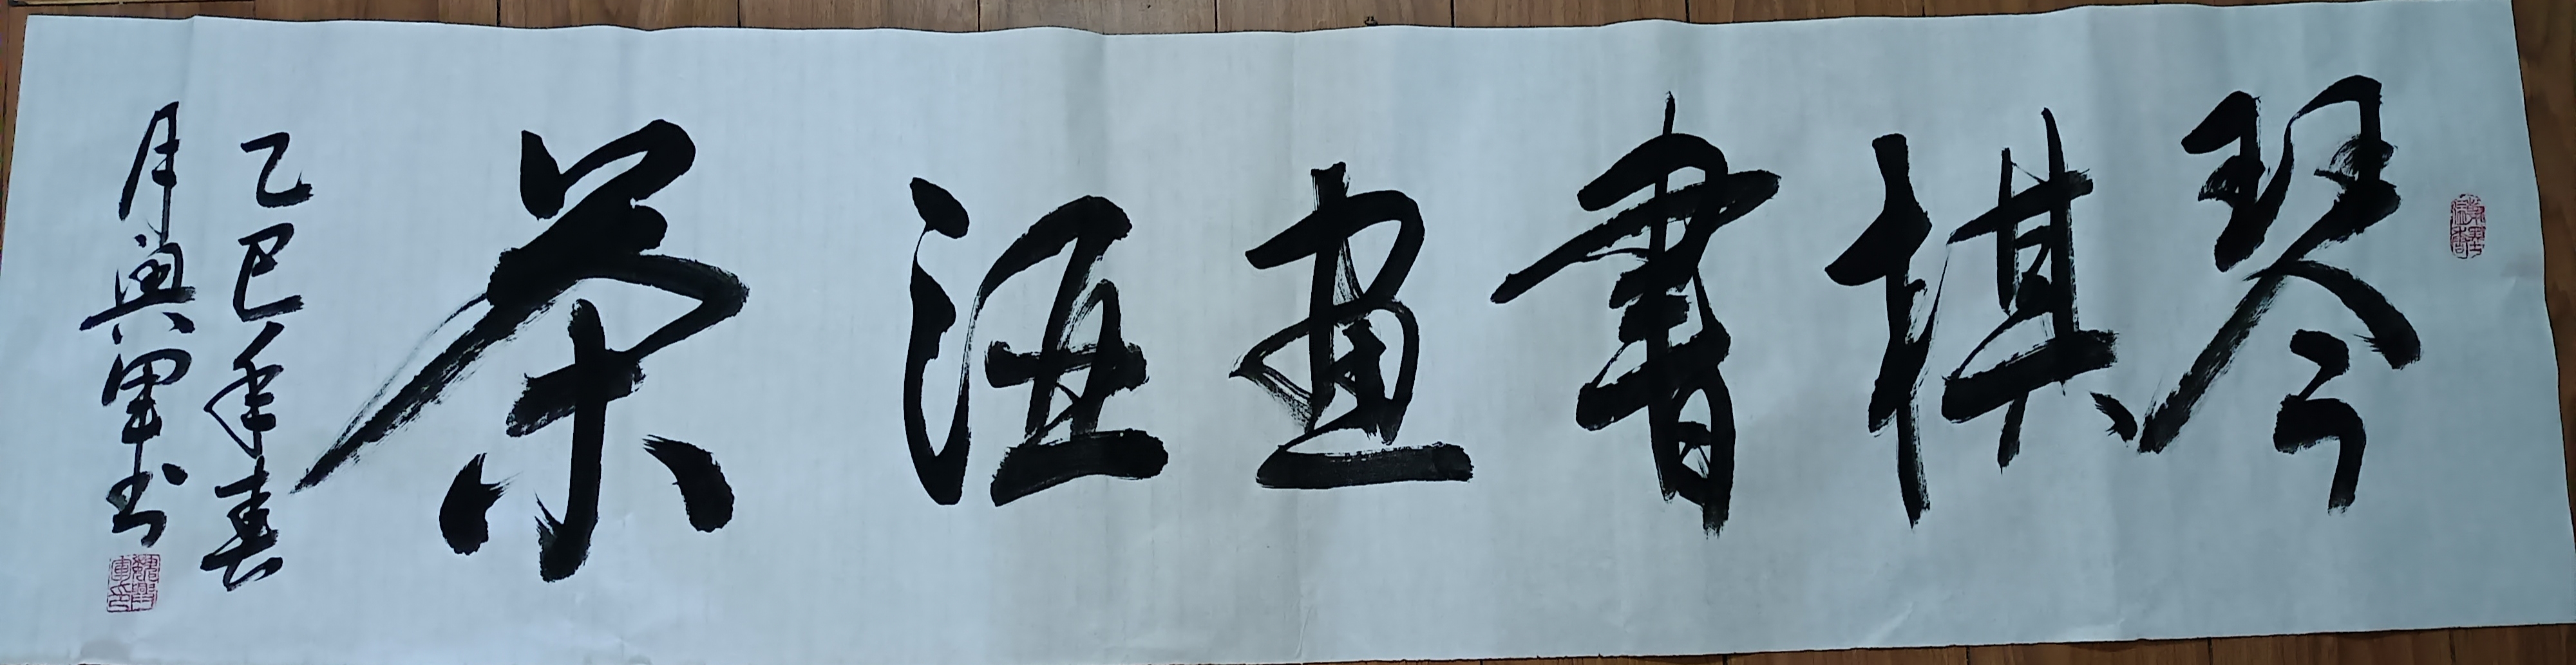 琴棋書画酒茶
乙巳年春
月興軍书